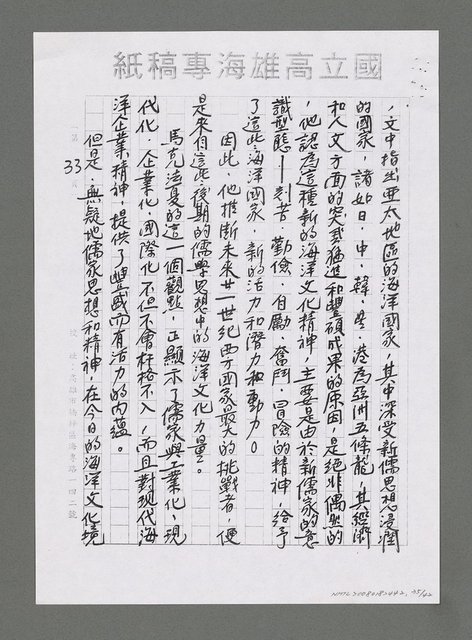 國立高雄海專稿紙
，文中指出亞太地區的海洋國家，其中深受新儒思想浸潤
的國家，諸如日、中、韓、星、港為亞洲五條龍，其經濟
和人文方面的突飛猛進和豐碩成果的原因，是絕非偶然的
，他認為這種新的海洋文化精神，主要是由於新儒家的意
識型態——刻苦、勤儉、自勵、奮鬥、冒險的精神，給予
了這些海洋國家，新的活力和潛力和動力。
因此，他推斷未來廿一世紀西方國家最大的挑戰者，便
是來自這些後期的儒學思想中的海洋文化力量。
馬克法夏的這一個觀點，正顯示了儒家與工業化、現
代化、企業化、國際化不但不會杆格不入，而且對現代海
洋企業精神，提供了豐盛而有活力的內蘊。
但是，無疑地儒家思想和精神，在今日的海洋文化境
第33頁
校址：高雄市楠梓區海專路一四二號
NMTL20080182442, 35/42